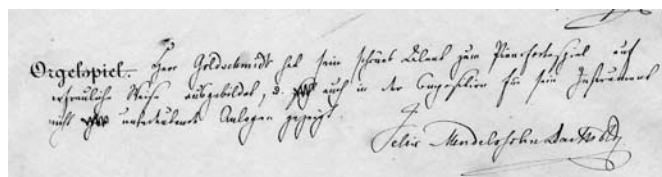 Orgelspiel. Herr Goldschmidt hat sein schönes Talent zum Pianofortespiel auf
erfreuliche Weise ausgebildet, u. auch in der Composition für sein Instrument
nicht unbedeutende Anlagen gezeigt.
Felix Mendelssohn Bartholdy